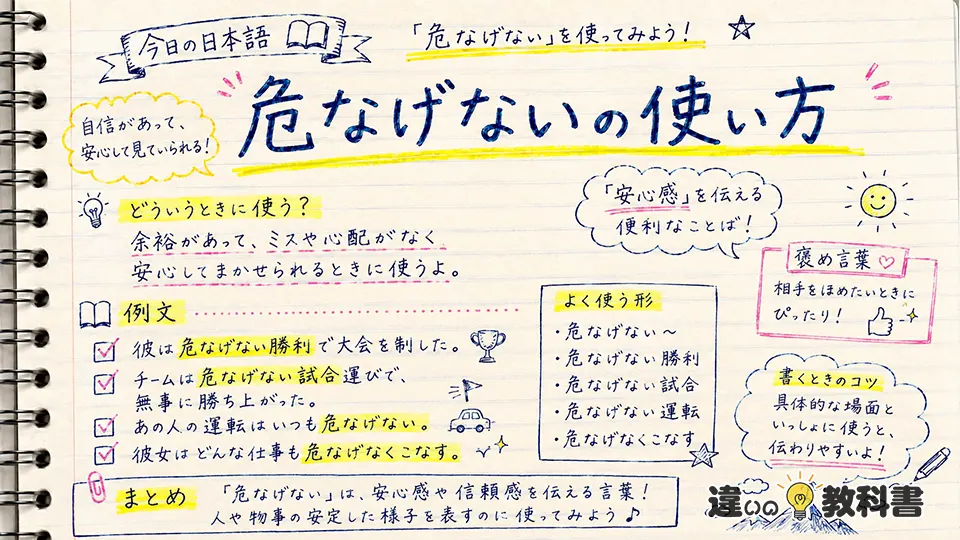 今日の日本語
「危なげない」を使ってみよう！
危なげないの使い方
自信があって、
安心して見ていられる！
「安心感」を伝える
便利なことば！
どういうときに使う？
余裕があって、ミスや心配がなく
安心してまかせられるときに使うよ。
褒め言葉♡
相手をほめたいときに
ぴったり！
例文
彼は危なげない勝利で大会を制した。
チームは危なげない試合運びで、
無事に勝ち上がった。
あの人の運転はいつも危なげない。
彼女はどんな仕事も危なげなくこなす。
よく使う形
・危なげない～
・危なげない勝利
・危なげない試合
・危なげない運転
・危なげなくこなす
書くときのコツ
具体的な場面と
いっしょに使うと、
伝わりやすいよ！
まとめ
「危なげない」は、安心感や信頼感を伝える言葉！
人や物事の安定した様子を表すのに使ってみよう♪
違いの教科書